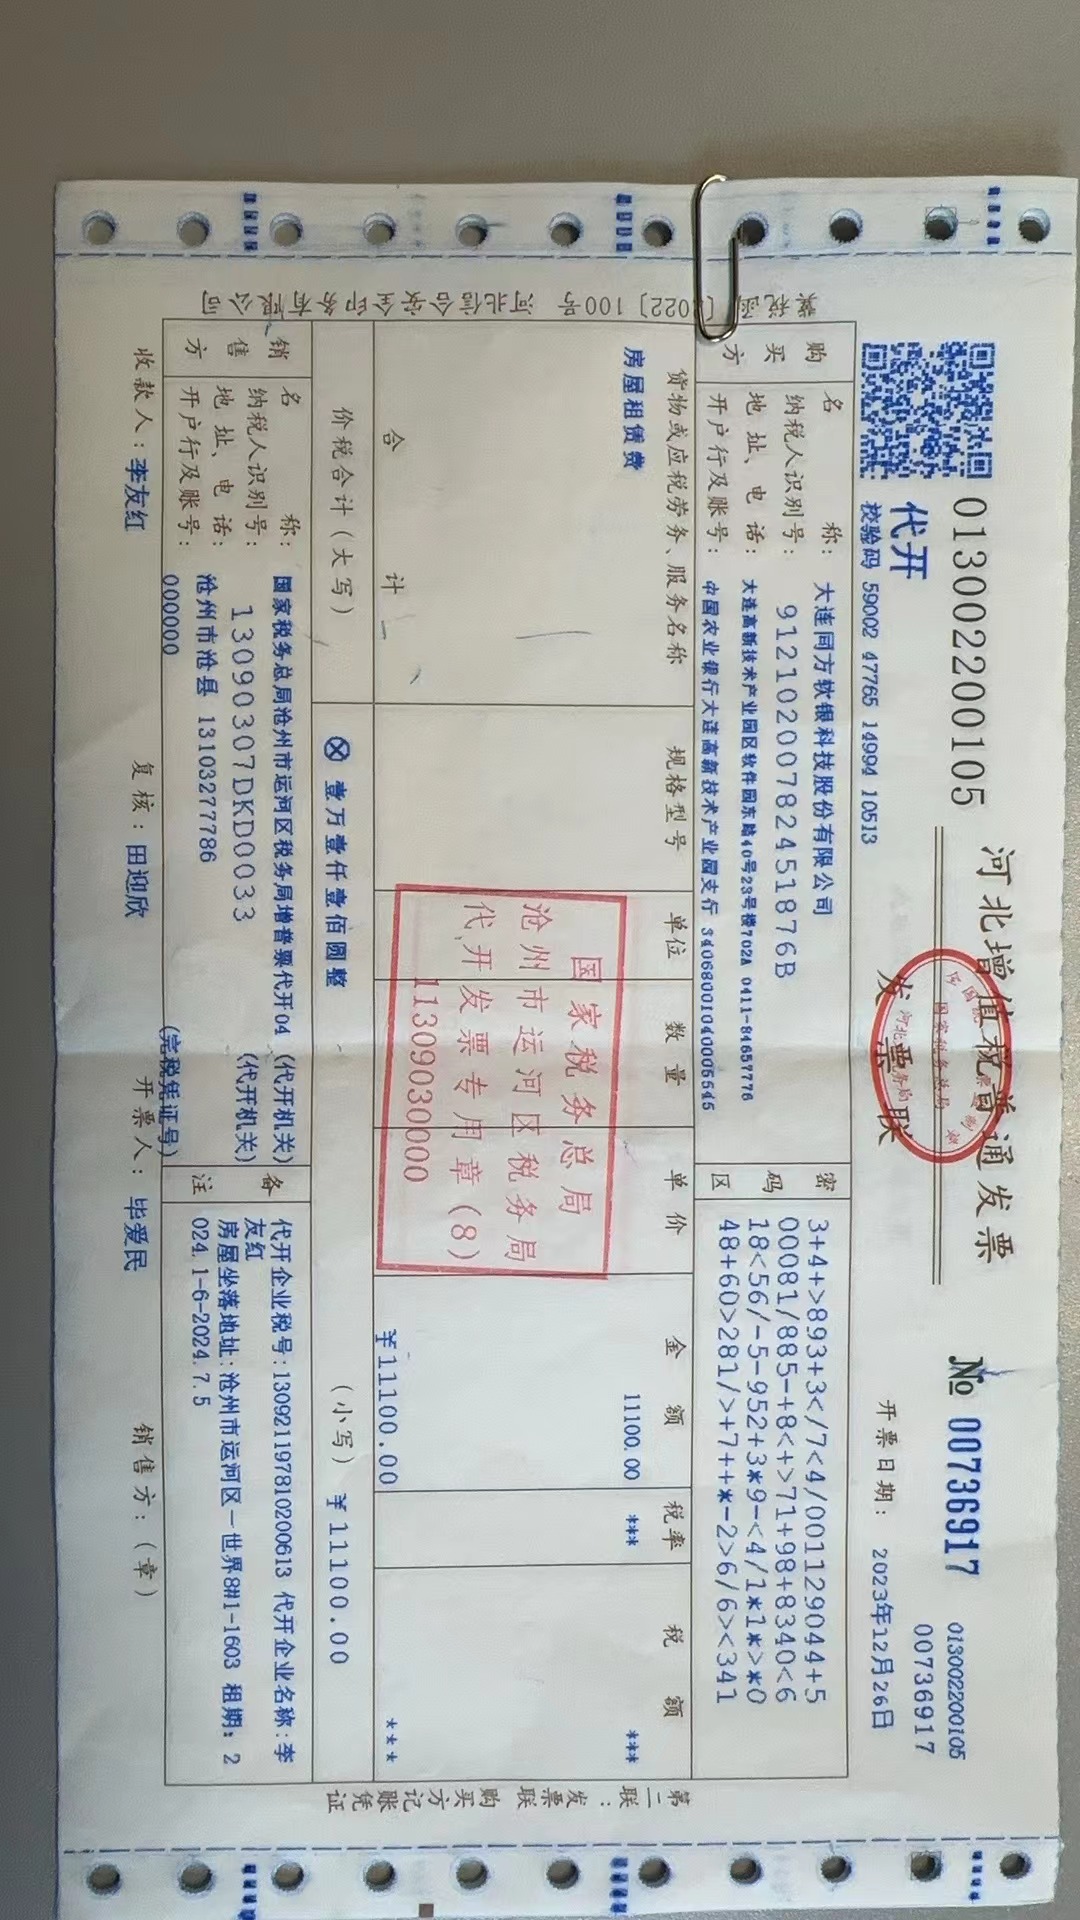 013002200105
河北增值税普通发票
№ 00736917
013002200105
00736917
代开
发票联
校验码 59002 47765 14994 10513
开票日期： 2023年12月26日
购买方
名称： 大连同方软银科技股份有限公司
纳税人识别号： 91210200782451876B
地址、电话： 大连高新技术产业园区软件园东路40号23号楼702A 0411-84657776
开户行及账号： 中国农业银行大连高新技术产业园支行 34068001040005545
密码区
3+4+>893+3</7<4/001129044+5
00081/885-+8<+>71+98+8340<6
18<56/-5-952+3*9-<4/1*1*>*0
48+60>281/>+7++*-2>6/6><341
货物或应税劳务、服务名称 规格型号 单位 数量 单价 金额 税率 税额
房屋租赁费 11100.00 *** ***
合计 ¥11100.00 ***
价税合计（大写） ⊗ 壹万壹仟壹佰圆整 （小写） ¥11100.00
销售方
名称： 国家税务总局沧州市运河区税务局增普票代开04 (代开机关)
纳税人识别号： 13090307DKD0033 (代开机关)
地址、电话： 沧州市沧县 13103277786
开户行及账号： 000000 (完税凭证号)
备注
代开企业税号:130921197810200613 代开企业名称:李
友红
房屋坐落地址:沧州市运河区一世界8#1-1603 租期: 2
024.1-6-2024.7.5
收款人：李友红 复核：田迎欣 开票人：毕爱民 销售方：（章）
国家税务总局
沧州市运河区税务局
代开发票专用章（8）
11309030000
国家税务总局
第二联：发票联 购买方记账凭证
〔2022〕100号 河北信合安全印务有限公司